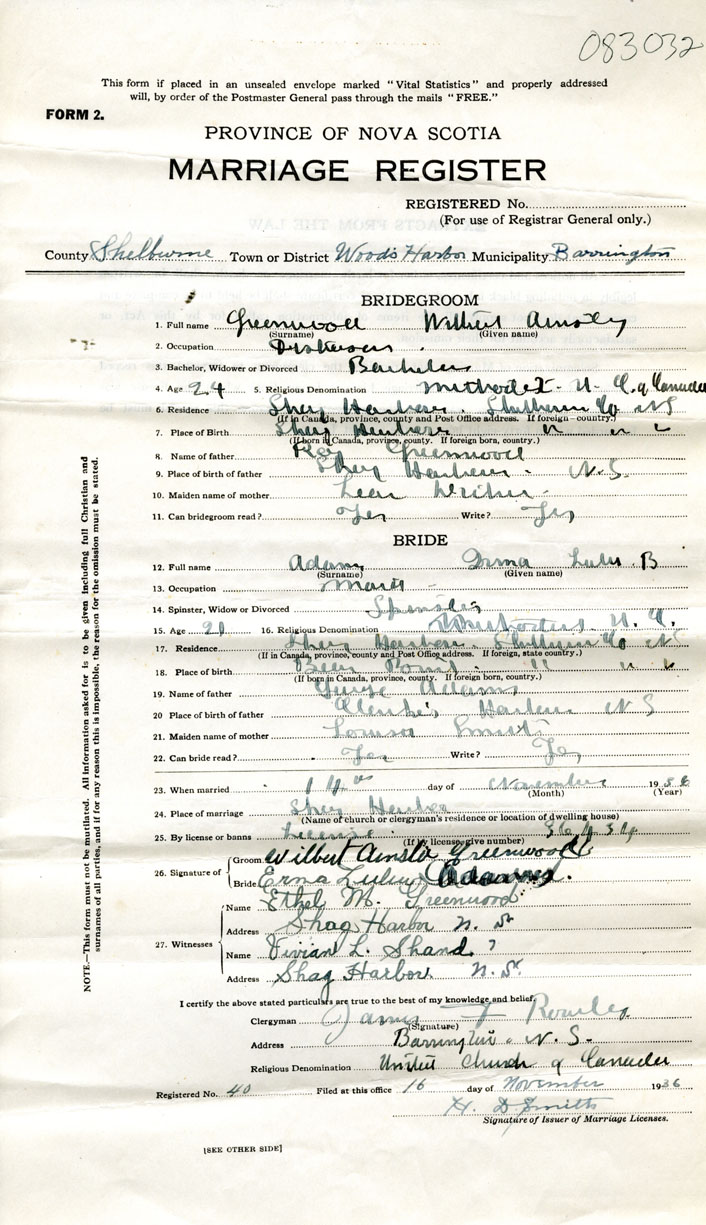 083032
This form if placed in an unsealed envelope marked "Vital Statistics" and properly addressed
will, by order of the Postmaster General pass through the mails "FREE."
FORM 2.
PROVINCE OF NOVA SCOTIA
MARRIAGE REGISTER
REGISTERED No.
(For use of Registrar General only.)
County Shelburne Town or District Woods Harbor Municipality Barrington
BRIDEGROOM
1. Full name Greenwood Wilbert
(Surname) (Given name)
2. Occupation
3. Bachelor, Widower or Divorced Bachelor
4. Age 24 5. Religious Denomination U. C. of Canada
6. Residence Shag Harbour Shelburne Co N S
(If in Canada, province, county and Post Office address. If foreign - country.)
7. Place of Birth Shag Harbour " " "
(If born in Canada, province, county. If foreign born, country.)
8. Name of father Greenwood
9. Place of birth of father Shag Harbour N. S.
10. Maiden name of mother
11. Can bridegroom read? Yes Write? Yes
BRIDE
12. Full name Adams Irma B
(Surname) (Given name)
13. Occupation
14. Spinster, Widow or Divorced Spinster
15. Age 16. Religious Denomination U. C.
17. Residence Shag Harbour Shelburne Co N S
(If in Canada, province, county and Post Office address. If foreign, state country.)
18. Place of birth Bear Point " " "
(If born in Canada, province, county. If foreign born, country.)
19. Name of father George Adams
20 Place of birth of father Clarke's Harbour N S
21. Maiden name of mother Louisa Smith
22. Can bride read? Yes Write? Yes
23. When married 14th day of November 1936
(Month) (Year)
24. Place of marriage Shag Harbour
(Name of church or clergyman's residence or location of dwelling house)
25. By license or banns License
(If by license, give number)
26. Signature of Groom Wilbert Greenwood
Bride Erma Adams.
27. Witnesses Name Ethel M. Greenwood
Address Shag Harbor N. S.
Name Vivian L. Shand
Address Shag Harbor N. S.
I certify the above stated particulars are true to the best of my knowledge and belief.
Clergyman James F Rowley
(Signature)
Address Barrington N. S.
Religious Denomination United Church of Canada
Registered No. 40 Filed at this office 16 day of November 1936
H. D Smith
Signature of Issuer of Marriage Licenses.
[SEE OTHER SIDE]
NOTE.—This form must not be mutilated. All information asked for is to be given including full Christian and
surnames of all parties, and if for any reason this is impossible, the reason for the omission must be stated.